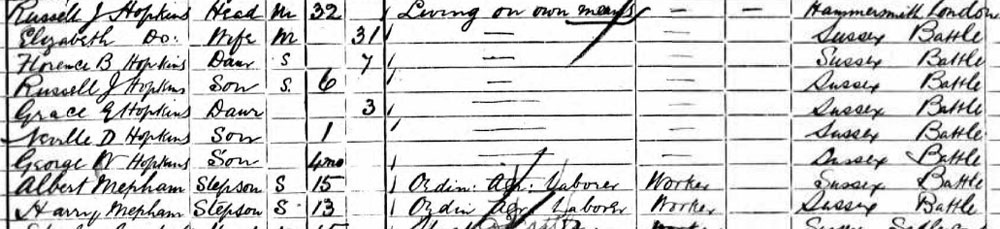 Russell J Hopkins Head M 32 Living on own means — — Hammersmith London
Elizabeth Do: Wife M 31 — — — Sussex Battle
Florence B Hopkins Daur S 7 — — — Sussex Battle
Russell J Hopkins Son S. 6 — — — Sussex Battle
Grace E Hopkins Daur 3 — — — Sussex Battle
Neville D Hopkins Son 1 — — — Sussex Battle
George W Hopkins Son 4mo — — — Sussex Battle
Albert Mepham Stepson S 15 Ordin: Agr: Laborer Worker Sussex Battle
Harry Mepham Stepson S 13 Ordin Agr Laborer Worker Sussex Battle